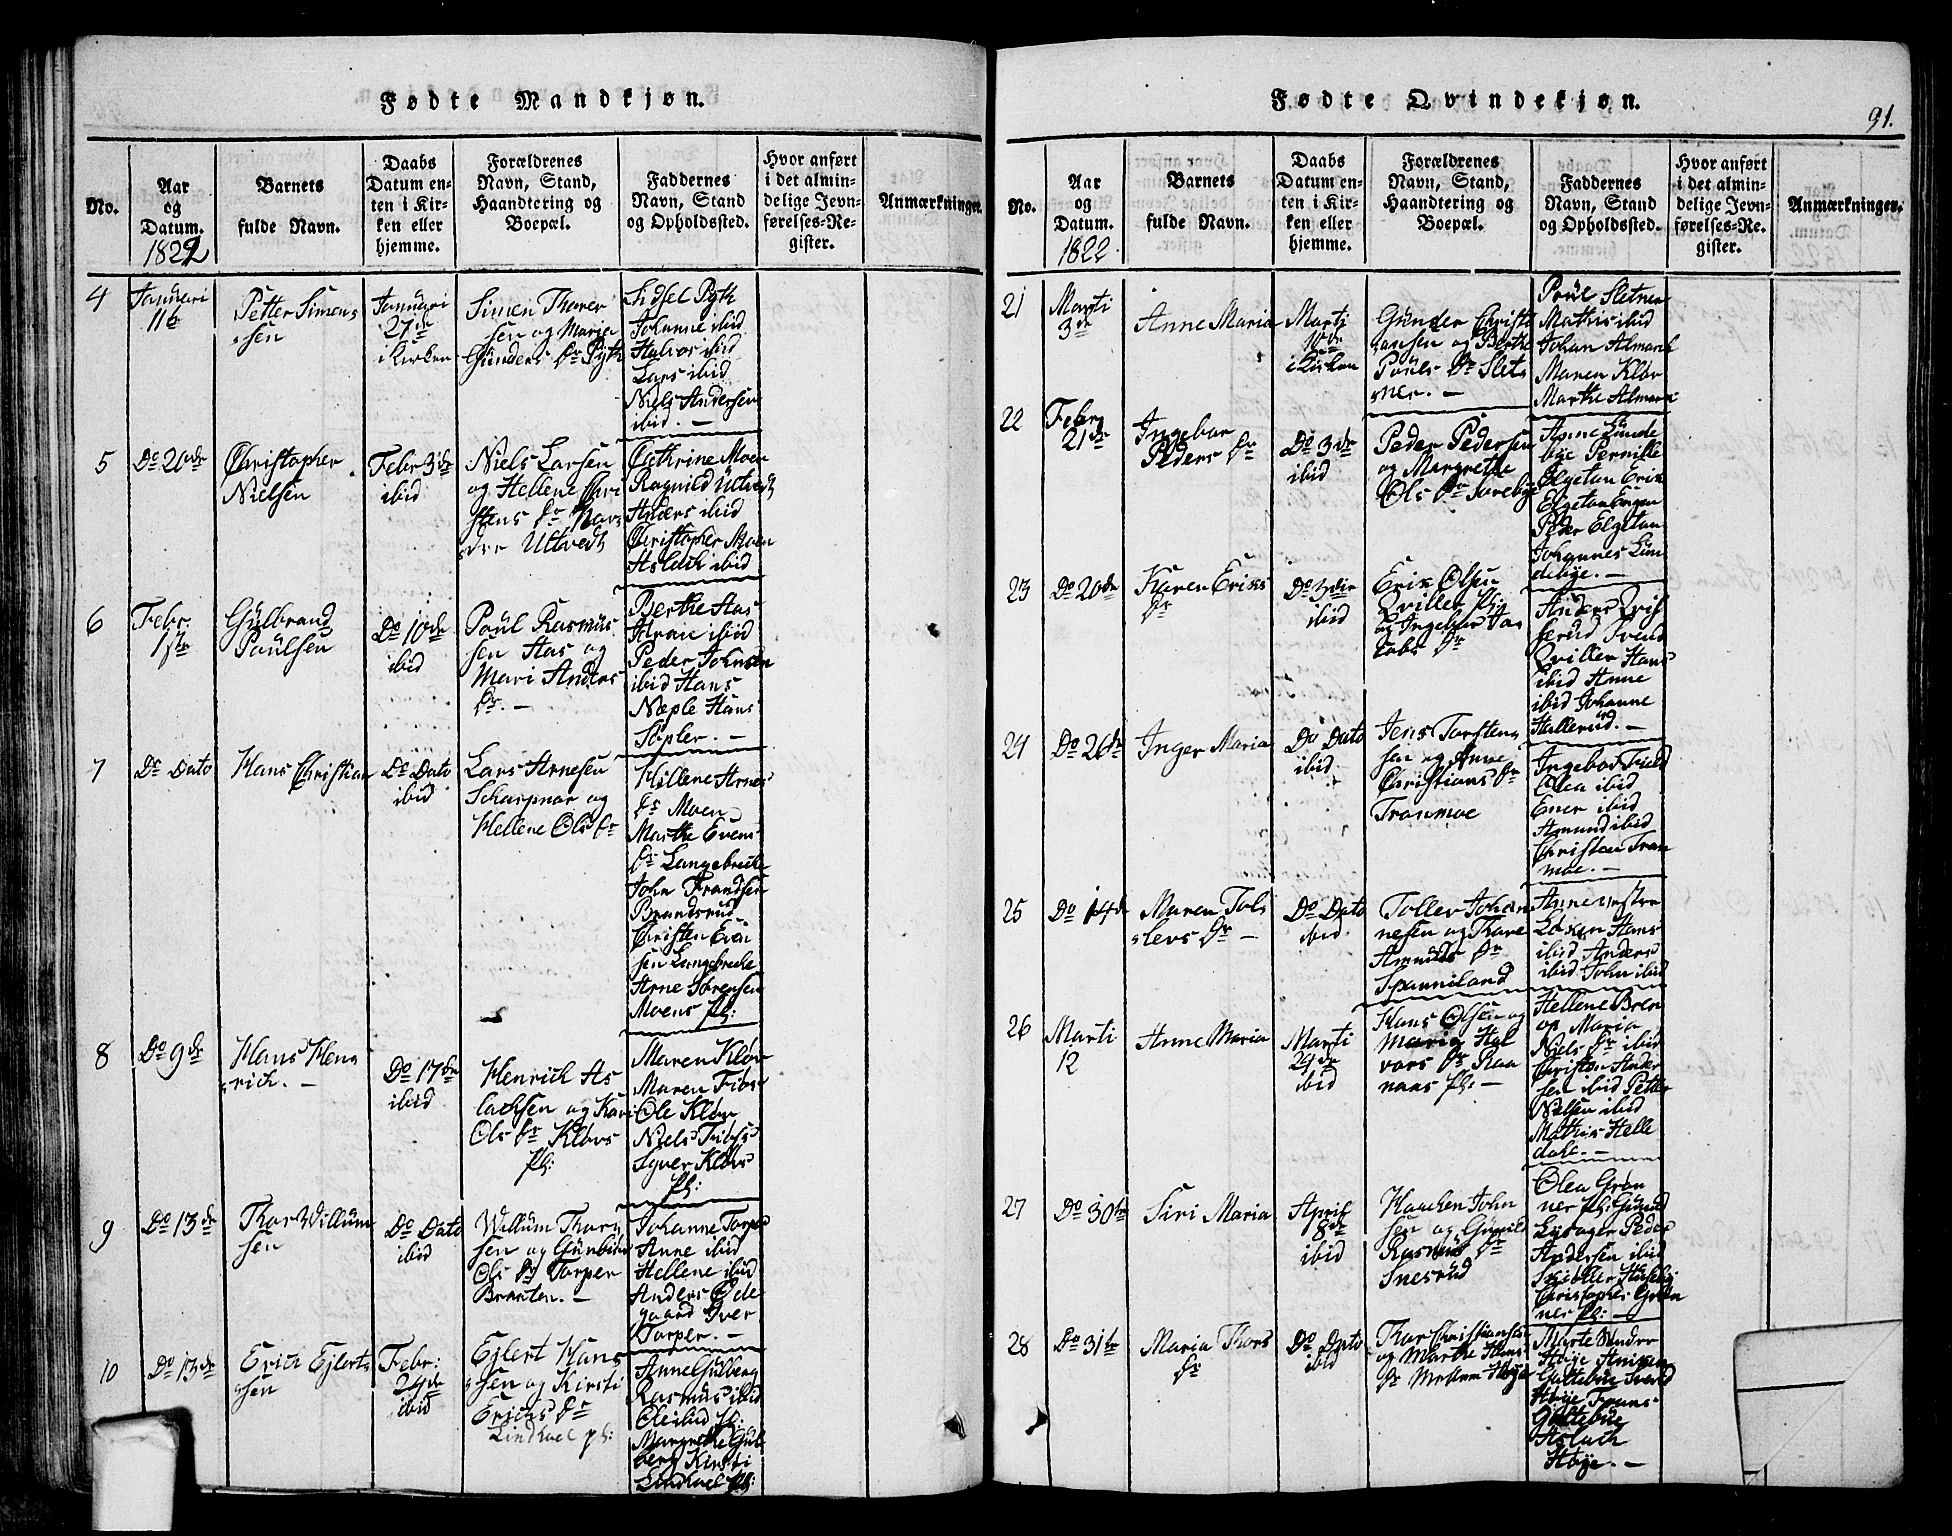 Fødte Mandkjøn.
No.
Aar
og
Datum.
1822
Barnets
fulde Navn.
Daabs
Datum en-
ten i Kir-
ken eller
hjemme.
Forældrenes
Navn, Stand,
Haandtering og
Boepæl.
Faddernes
Navn, Stand
og Opholdssted.
Hvor anført
i det almin-
delige Jevn-
førelses-Re-
gister.
Anmærkninger.
4
Januari
11te
Petter Simens
sen
Januari
27de
i Kirken
Simen Thorer
sen og Marja
Günders Dr Pyth
Sidsel Pyth
Johanne ibid
Halvos ibid
Lars ibid
Niels Andersen
ibid. —
5
Do 20de
Christopher
Nielsen
Febr 3die
ibid
Niels Larsen
og Hellene Chri
stens Dr Nor
dre Ultvedt
Cathrine Moen
Ragnild Ultvedt
Anders ibid
Christopher Moen
Aslach ibid
6
Febr.
1ste
Gülbrand
Paülsen
Do 10de
ibid
Poül Rasmus
sen Aas og
Mari Anders
Dr. —
Berthe Aas
Aran ibid
Peder Johnsen
ibid Hans
Næple Hans
Sopler. —
7
Do Dato
Hans Christian
Do Dato
ibid
Lars Arnesen
Scharpnor og
Hellene Ols Dr
Hellene Arnes
Dr Moen
Marthe Evens
Dr Langebreche
John Frandsen
Brandsrud
Christen Even
sen Langebreche
Arne Sörensen
Moens pl:
8
Do 9de
Hans Hen
rich. —
Do 17de
ibid
Henrich As
lachsen og Kari
Ols Dr Kløvs
pl:
Maren Kløv
Maren
Ole Kløv
Niels
Syver Kløvs
pl:
9
Do 13de
Thor Willum
sen
Do Dato
ibid
Willum Thor
sen og Günbiör
Ols Dr Torper
Braaten. —
Johanne Torper
Anne ibid
Hellene ibid
Anders Öde
gaard Iver
Torper. —
10
Do 13de
Erich Ejlert
sen
Febr:
24de
ibid
Ejlert Hans
sen og Kirsti
Erichs Dr
Lindhoel pl:
Anne Gulberg
Rasmus ibid
Ole ibid pl:
Margrethe Gul
berg Kirsti
Lindhoel pl:
Fødte Qvindekjøn.
91.
No.
Aar
og
Datum.
1822
Barnets
fulde Navn.
Daabs
Datum en-
ten i Kir-
ken eller
hjemme.
Forældrenes
Navn, Stand,
Haandtering og
Boepæl.
Faddernes
Navn, Stand
og Opholdssted.
Hvor anført
i det almin-
delige Jevn-
førelses-Re-
gister.
Anmærkninger.
21
Marti
3de
Anne Maria
Marti
10de
i Kirken
Günder Christi
ansen og Berthe
Poüls Dr Slet
ner. —
Poül Sletner
Mathis ibid
Johan Almark
Maren Kløv
Marthe Almark
22
Febr
21de
Ingebor
Peders Dr
Do 3de
ibid
Peder Pedersen
og Margrethe
Ols Dr
Anne Lunde
bye Pernille
Elgetun Erik
Elgetun
Peder Elgetun
Johannes Lün
debye. —
23
Do 20de
Karen Eriks
Dr
Do 3die
ibid
Erik Olsen
Qviller pl:
og Ingebor Ja
cobs Dr
Anders
Qviller Hans
ibid Anne
ibid Johanne
Hallerud. —
24
Do 26de
Inger Maria
Do Dato
ibid
Jens Torsten
sen og Anne
Christians Dr
Tronmoe
Ingebor
Olea ibid
Ener ibid
Amund ibid
Christen Tron
moe. —
25
Do 14de
Maren Tol
levs Dr —
Do Dato
ibid
Toller Johan
nesen og Thore
Amunds Dr
Spanniland
Anne vestre
Löken Hans
ibid Anders
ibid John ibid
26
Marti
12
Anne Maria
Marti
24de
ibid
Hans Olsen og
Maria Hal
vors Dr Raa
naas pl: —
Hellene Bren
Maria
Niels Dr ibid
Christen Ander
sen ibid Petter
Nielsen ibid
Mathis Helle
dahl. —
27
Do 30te
Siri Maria
April
8de
ibid
Haachen John
sen og Günild
Rasmus Dr
Snesrud
Olea Grøn
ner pl: Günild
Lysager Peder
Andersen ibid
Christopher Grøn
ner pl: —
28
Do 31te
Maria Thors
Dr
Do Dato
ibid
Thor Christiansen
og Marthe Hans
Dr Mellem Høje
Marte Nordre
Høje
Goltebüe
Høje Frans
Goltebüe
Aslach
Høje. —